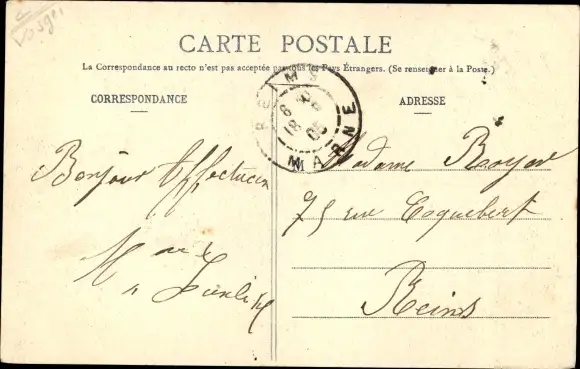 Vosges
CARTE POSTALE
La Correspondance au recto n'est pas acceptée par tous les Pays Étrangers. (Se renseigner à la Poste.)
CORRESPONDANCE
ADRESSE
REIMS
MARNE
Bonjour Affectueux
Madame Royer
75 rue Coquebert
Reims